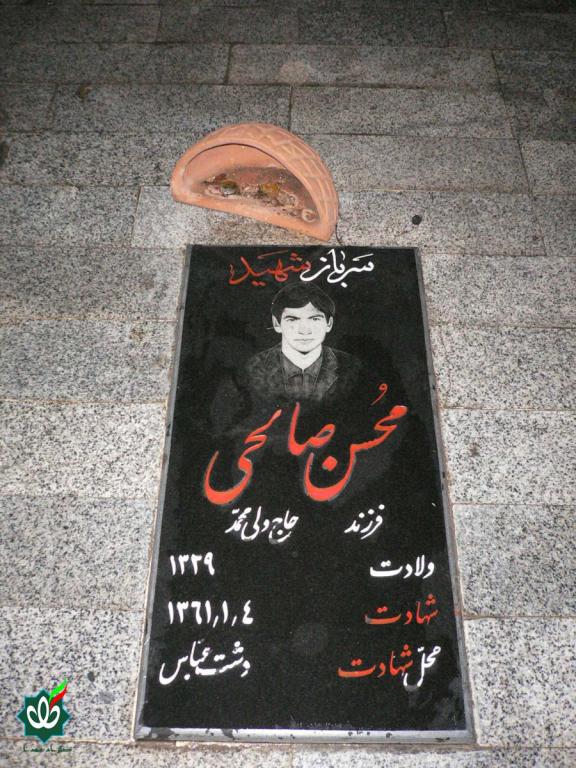 سرباز شهید
محسن صالحی
فرزند حاج ولی محمد
ولادت ۱۳۳۹
شهادت ۱۳۶۱٫۱٫۴
محل شهادت دشت عباس